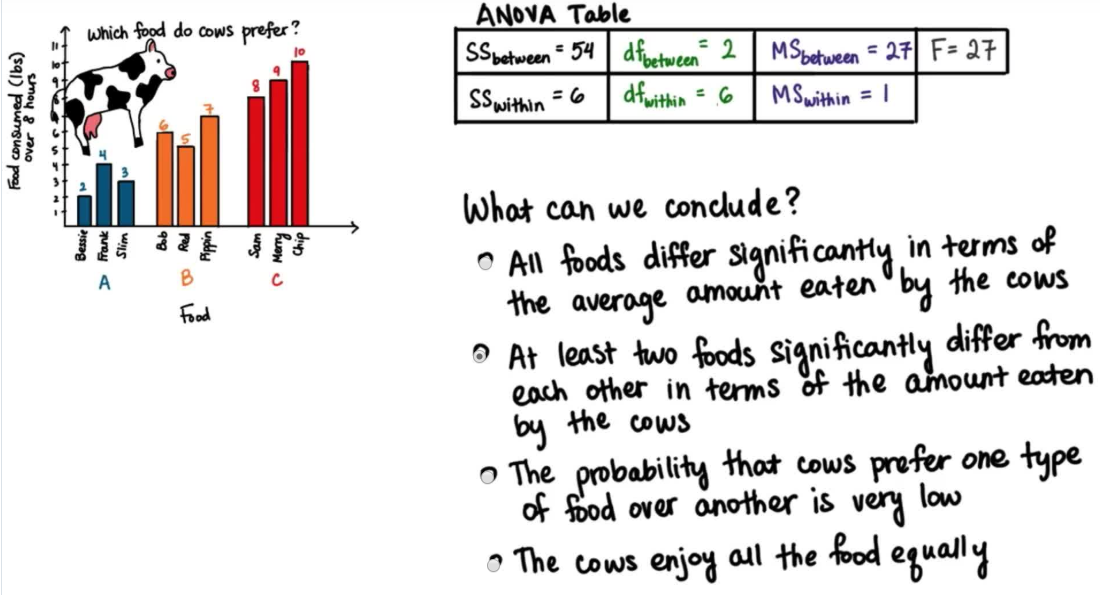 Which food do cows prefer?
Food consumed (lbs)
over 8 hours
11
10
9
8
7
6
5
4
3
2
1
2
4
3
6
5
7
8
9
10
Bessie
Frank
Slim
Bob
Red
Pippin
Sam
Merry
Chip
A
B
C
Food
ANOVA Table
SSbetween = 54 dfbetween = 2 MSbetween = 27 F = 27
SSwithin = 6 dfwithin = 6 MSwithin = 1
What can we conclude?
All foods differ significantly in terms of
the average amount eaten by the cows
At least two foods significantly differ from
each other in terms of the amount eaten
by the cows
The probability that cows prefer one type
of food over another is very low
The cows enjoy all the food equally